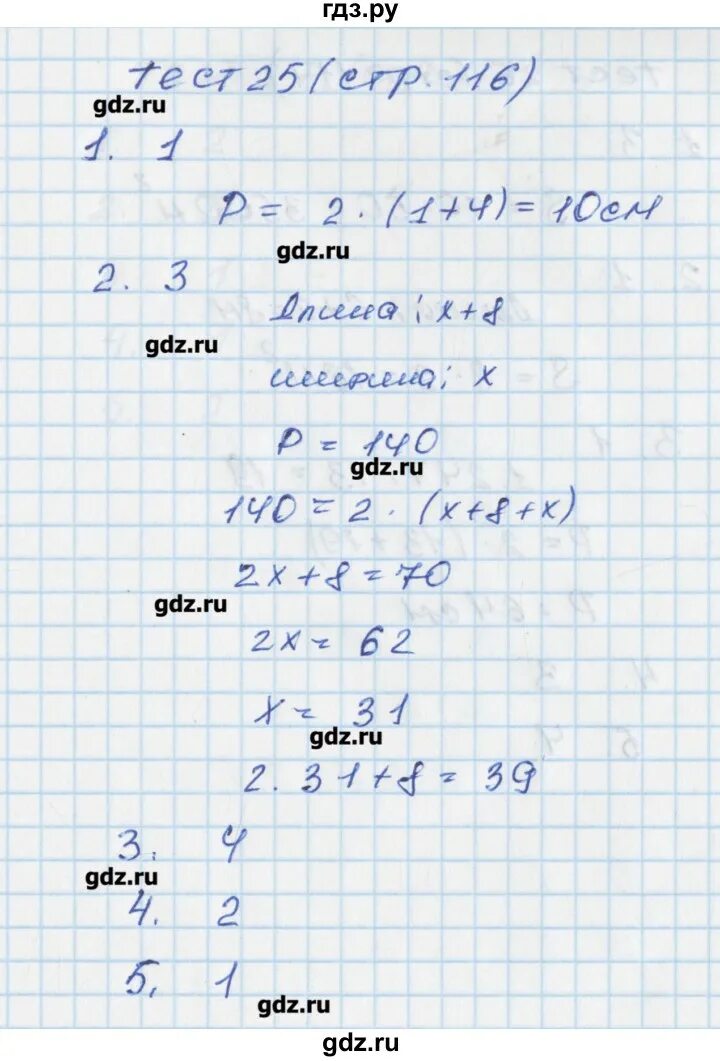 гдз.ру
тест 25 (стр. 116)
gdz.ru
1. 1
P = 2 · (1+4) = 10см
gdz.ru
2. 3
Длина: x+8
gdz.ru
ширина: x
P = 140
gdz.ru
140 = 2 · (x+8+x)
2x+8=70
gdz.ru
2x = 62
x = 31
gdz.ru
2. 31+8 = 39
3. 4
gdz.ru
4. 2
5. 1
gdz.ru
gdz.ru